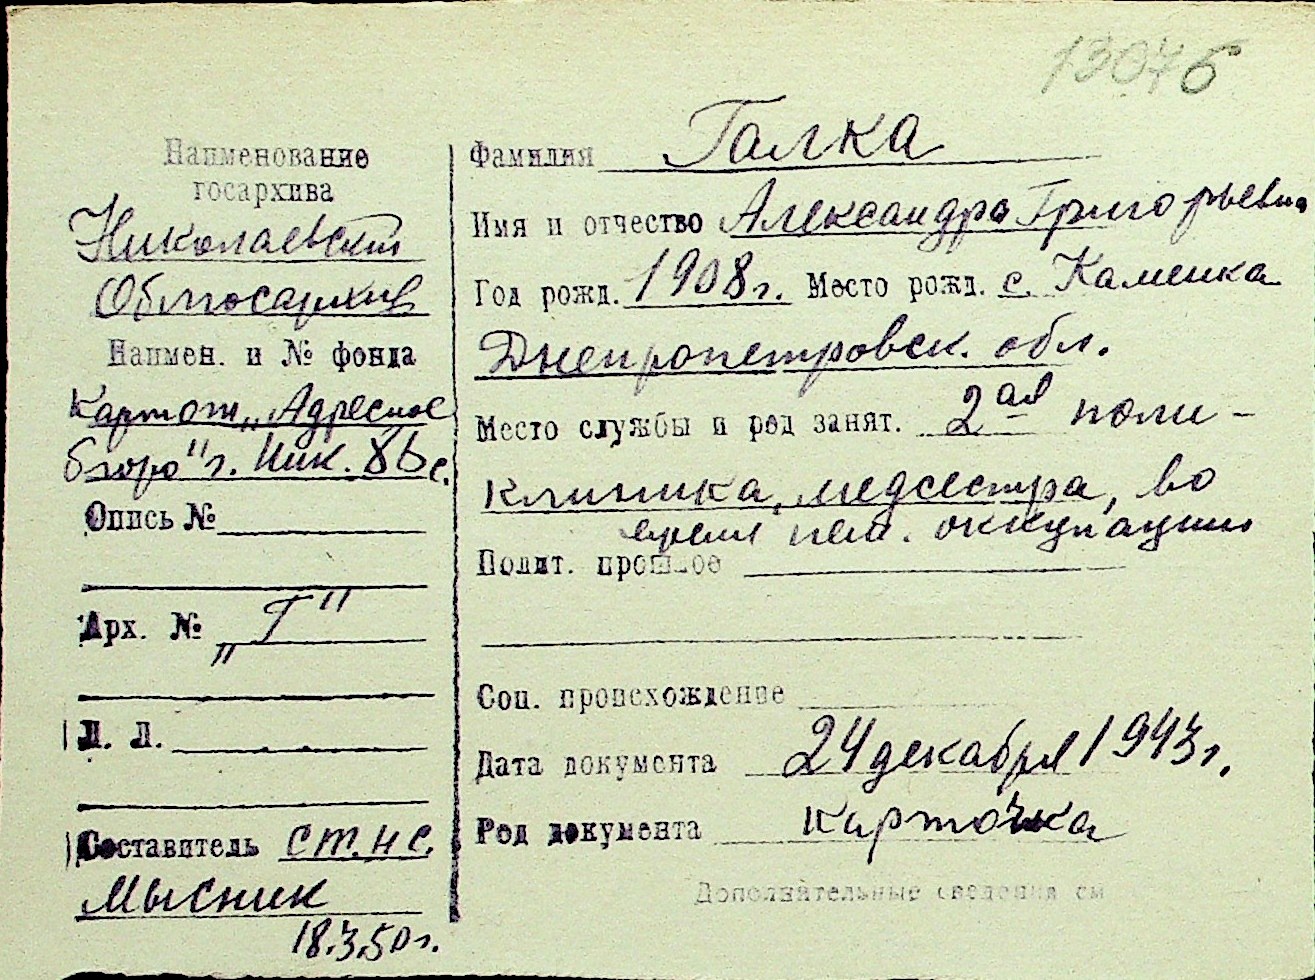 13076
Наименование
госархива
Николаевский
Облгосархив
Наимен. и № фонда
Картот. „Адресное
бюро" г. Ник.
Опись №
Арх. № „Г"
Л. Л.
Составитель ст. н. с.
Мысник
18.3.50 г.
Фамилия Галка
Имя и отчество Александра Григорьевна
Год рожд. 1908 г. Место рожд. с. Каменка
Днепропетровск. обл.
Место службы и род занят. 2ая поли-
клиника, медсестра, во
время нем. оккупации
Полит. прошлое
Соц. происхождение
Дата документа 24 декабря 1943 г.
Род документа карточка
Дополнительные сведения см